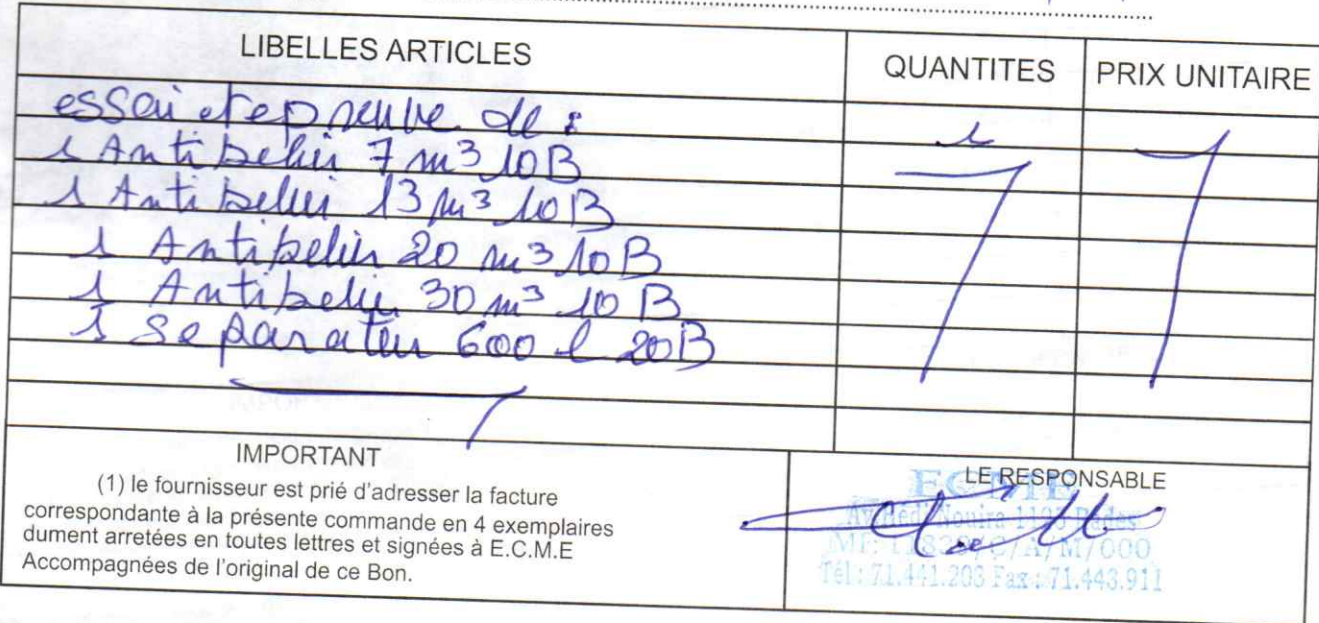 LIBELLES ARTICLES QUANTITES PRIX UNITAIRE
essai et epreuve de : 1
1 Antibelier 7 m³ 10B
1 Antibelier 13 m³ 10B
1 Antibelier 20 m³ 10B
1 Antibelier 30 m³ 10B
1 separateur 600 l 20B
IMPORTANT
(1) le fournisseur est prié d'adresser la facture
correspondante à la présente commande en 4 exemplaires
dument arretées en toutes lettres et signées à E.C.M.E
Accompagnées de l'original de ce Bon.
LE RESPONSABLE
ECME
Av. Hedi Nouira
/C/A/M/000
Tél : 71.441.203 Fax : 71.443.911